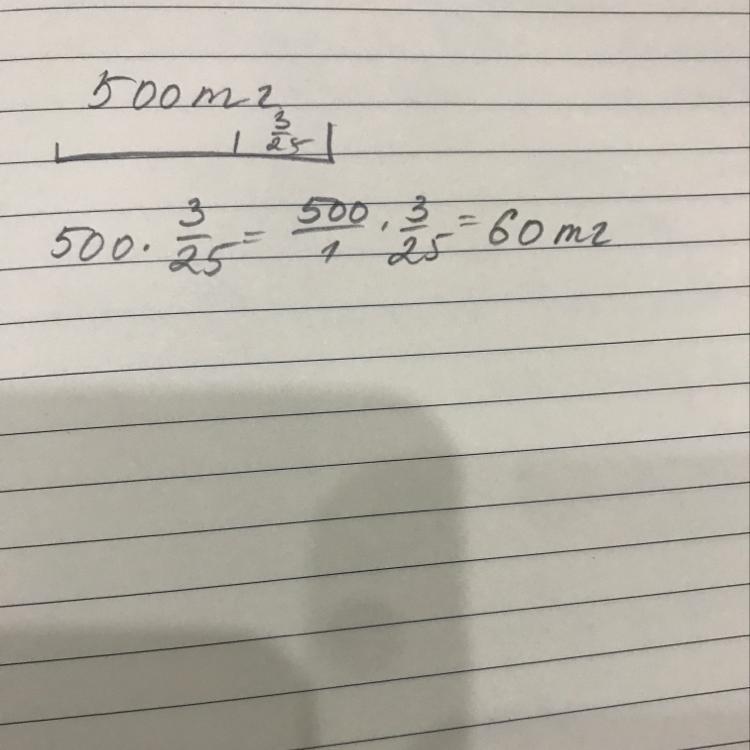 500 mг
3/25
500 · 3/25 = 500/1 · 3/25 = 60 mг